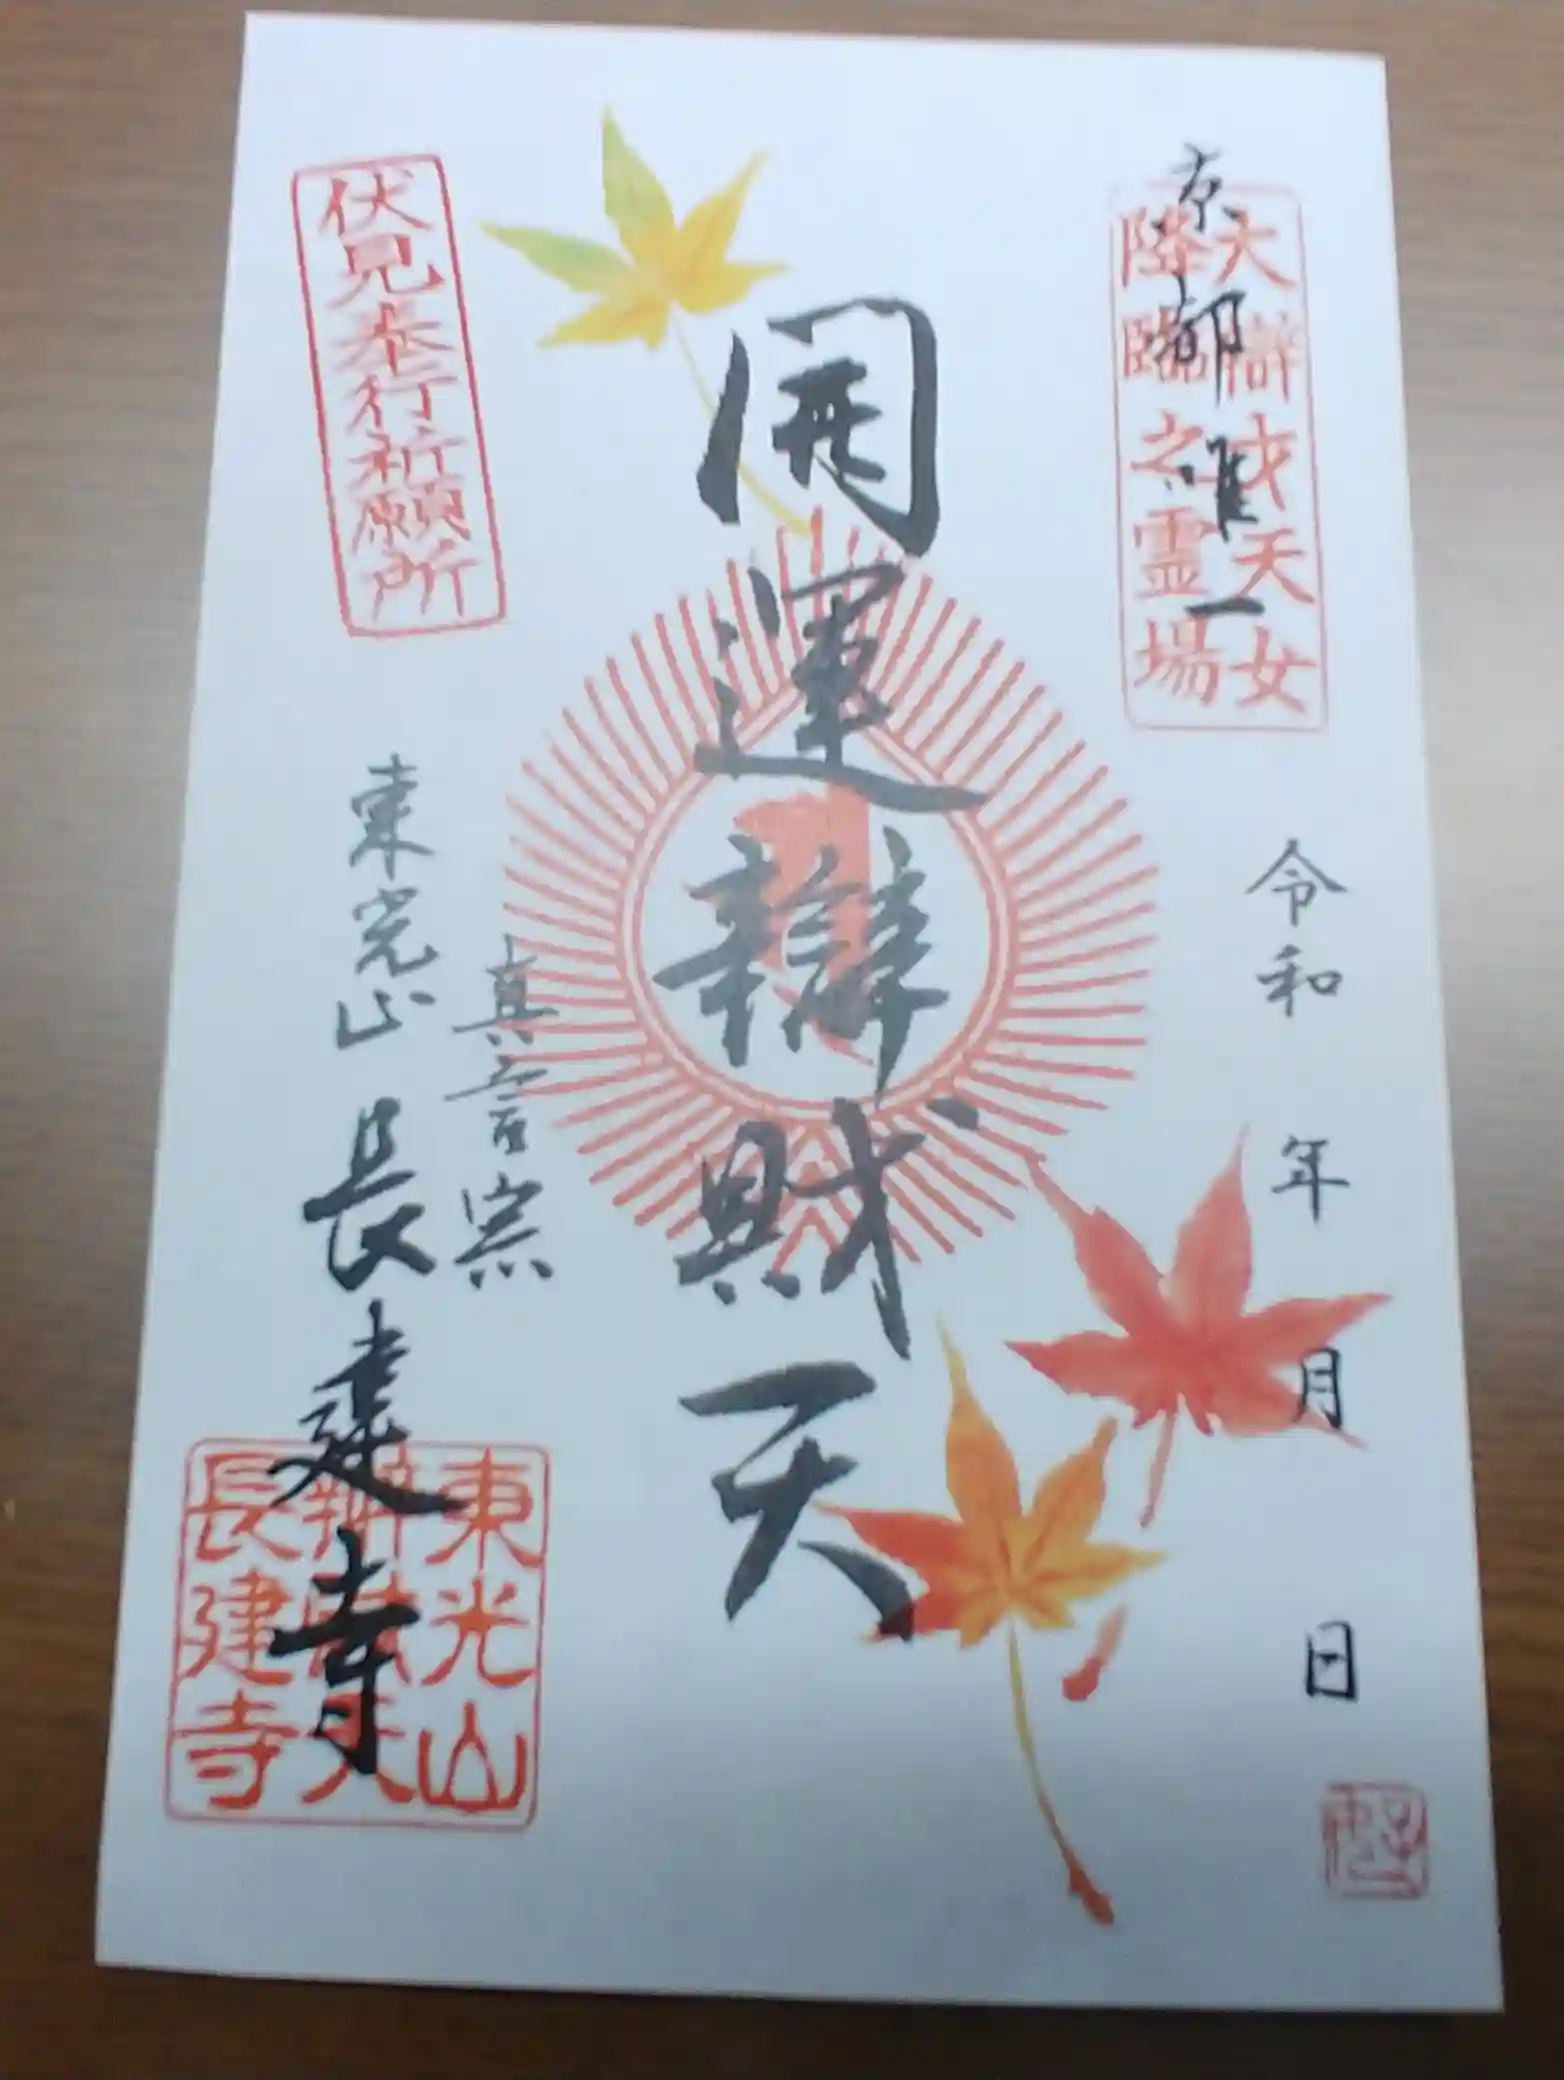 京都唯一
大辯才天女
降臨之霊場
令和 年 月 日
開運辯財天
真言宗
東光山 長建寺
伏見奉行祈願所
東光山
辯財天
長建寺